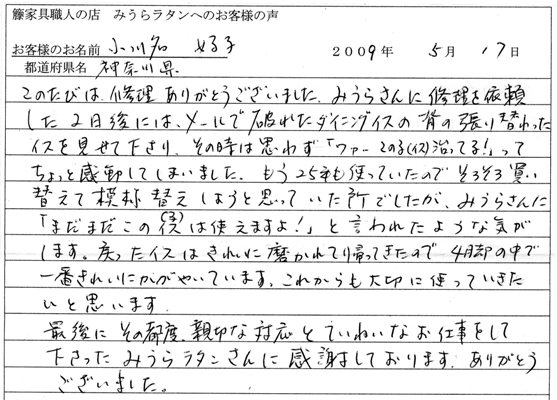 籐家具職人の店 みうらラタンへのお客様の声
お客様のお名前 小川名 好子 2009年 5月 17日
都道府県名 神奈川県
このたびは、修理ありがとうございました。みうらさんに修理を依頼
した2日後には、メールで破れたダイニングイスの背の張り替わった
イスを見せて下さり、その時は思わず「ワァーこの子(イス)治ってる!」って
ちょっと感動してしまいました。もう25年も使っていたのでそろそろ買い
替えて模様替えしようと思っていた所でしたが、みうらさんに
「まだまだこの(子)は使えますよ!」と言われたような気が
します。戻ったイスはきれいに磨かれて帰ってきたので4脚の中で
一番きれいにかがやいています。これからも大切に使っていきた
いと思います。
最後にその都度、親切な対応とていねいなお仕事をして
下さったみうらラタンさんに感謝しております。ありがとう
ございました。